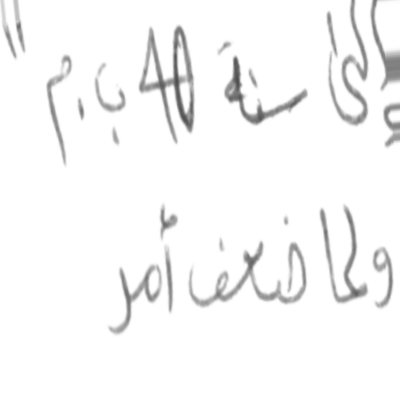 سنة 40 ب.م
ولما ضعف أمر